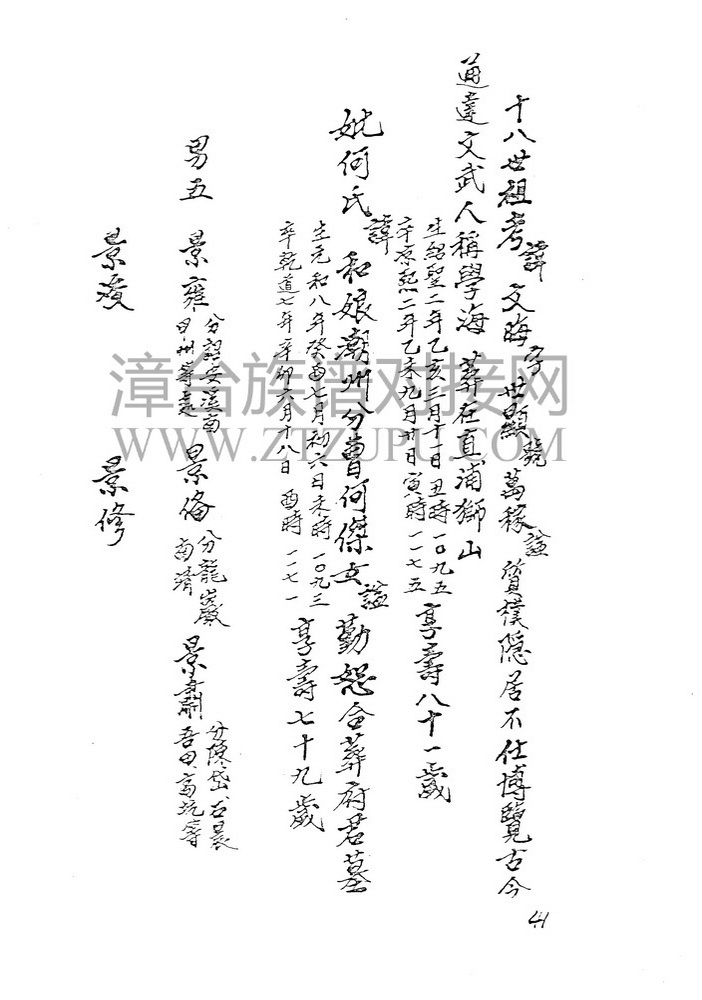 十八世祖考諱文晦字世顯號萬稼諡質樸隱居不仕博覽古今
通達文武人稱學海葬在直浦獅山
生紹聖二年乙亥二月十一日丑時一〇九五
卒淳熙二年乙未九月廿日寅時一一七五
享壽八十一歲
妣何氏諱和娘潮州分曹何傑女諡勤恕合葬府君墓
生元和八年癸酉七月初六日未時一〇九三
卒乾道七年辛卯六月十八日酉時一一七一
享壽七十九歲
男五 景雍 分詔安溪南 州等處
景備 分龍巖 南靖
景肅 分 岱 吾田高坑等
景瀆 景修
漳台族谱对接网
WWW.ZTZUPU.COM
41